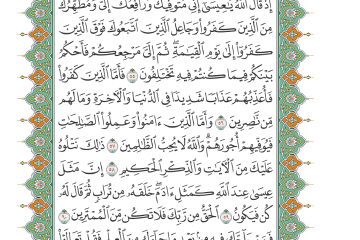 إِذْ قَالَ ٱللَّهُ يَٰعِيسَىٰٓ إِنِّى مُتَوَفِّيكَ وَرَافِعُكَ إِلَىَّ وَمُطَهِّرُكَ
مِنَ ٱلَّذِينَ كَفَرُوا۟ وَجَاعِلُ ٱلَّذِينَ ٱتَّبَعُوكَ فَوْقَ ٱلَّذِينَ
كَفَرُوٓا۟ إِلَىٰ يَوْمِ ٱلْقِيَٰمَةِ ۖ ثُمَّ إِلَىَّ مَرْجِعُكُمْ فَأَحْكُمُ
بَيْنَكُمْ فِيمَا كُنتُمْ فِيهِ تَخْتَلِفُونَ ٥٥ فَأَمَّا ٱلَّذِينَ كَفَرُوا۟
فَأُعَذِّبُهُمْ عَذَابًا شَدِيدًا فِى ٱلدُّنْيَا وَٱلْءَاخِرَةِ وَمَا لَهُم
مِّن نَّٰصِرِينَ ٥٦ وَأَمَّا ٱلَّذِينَ ءَامَنُوا۟ وَعَمِلُوا۟ ٱلصَّٰلِحَٰتِ
فَيُوَفِّيهِمْ أُجُورَهُمْ ۗ وَٱللَّهُ لَا يُحِبُّ ٱلظَّٰلِمِينَ ٥٧ ذَٰلِكَ نَتْلُوهُ
عَلَيْكَ مِنَ ٱلْءَايَٰتِ وَٱلذِّكْرِ ٱلْحَكِيمِ ٥٨ إِنَّ مَثَلَ
عِيسَىٰ عِندَ ٱللَّهِ كَمَثَلِ ءَادَمَ ۖ خَلَقَهُۥ مِن تُرَابٍ ثُمَّ قَالَ لَهُۥ
كُن فَيَكُونُ ٥٩ ٱلْحَقُّ مِن رَّبِّكَ فَلَا تَكُن مِّنَ ٱلْمُمْتَرِينَ ٦٠
فَمَنْ حَآجَّكَ فِيهِ مِنۢ بَعْدِ مَا جَآءَكَ مِنَ ٱلْعِلْمِ فَقُلْ تَعَالَوْا۟